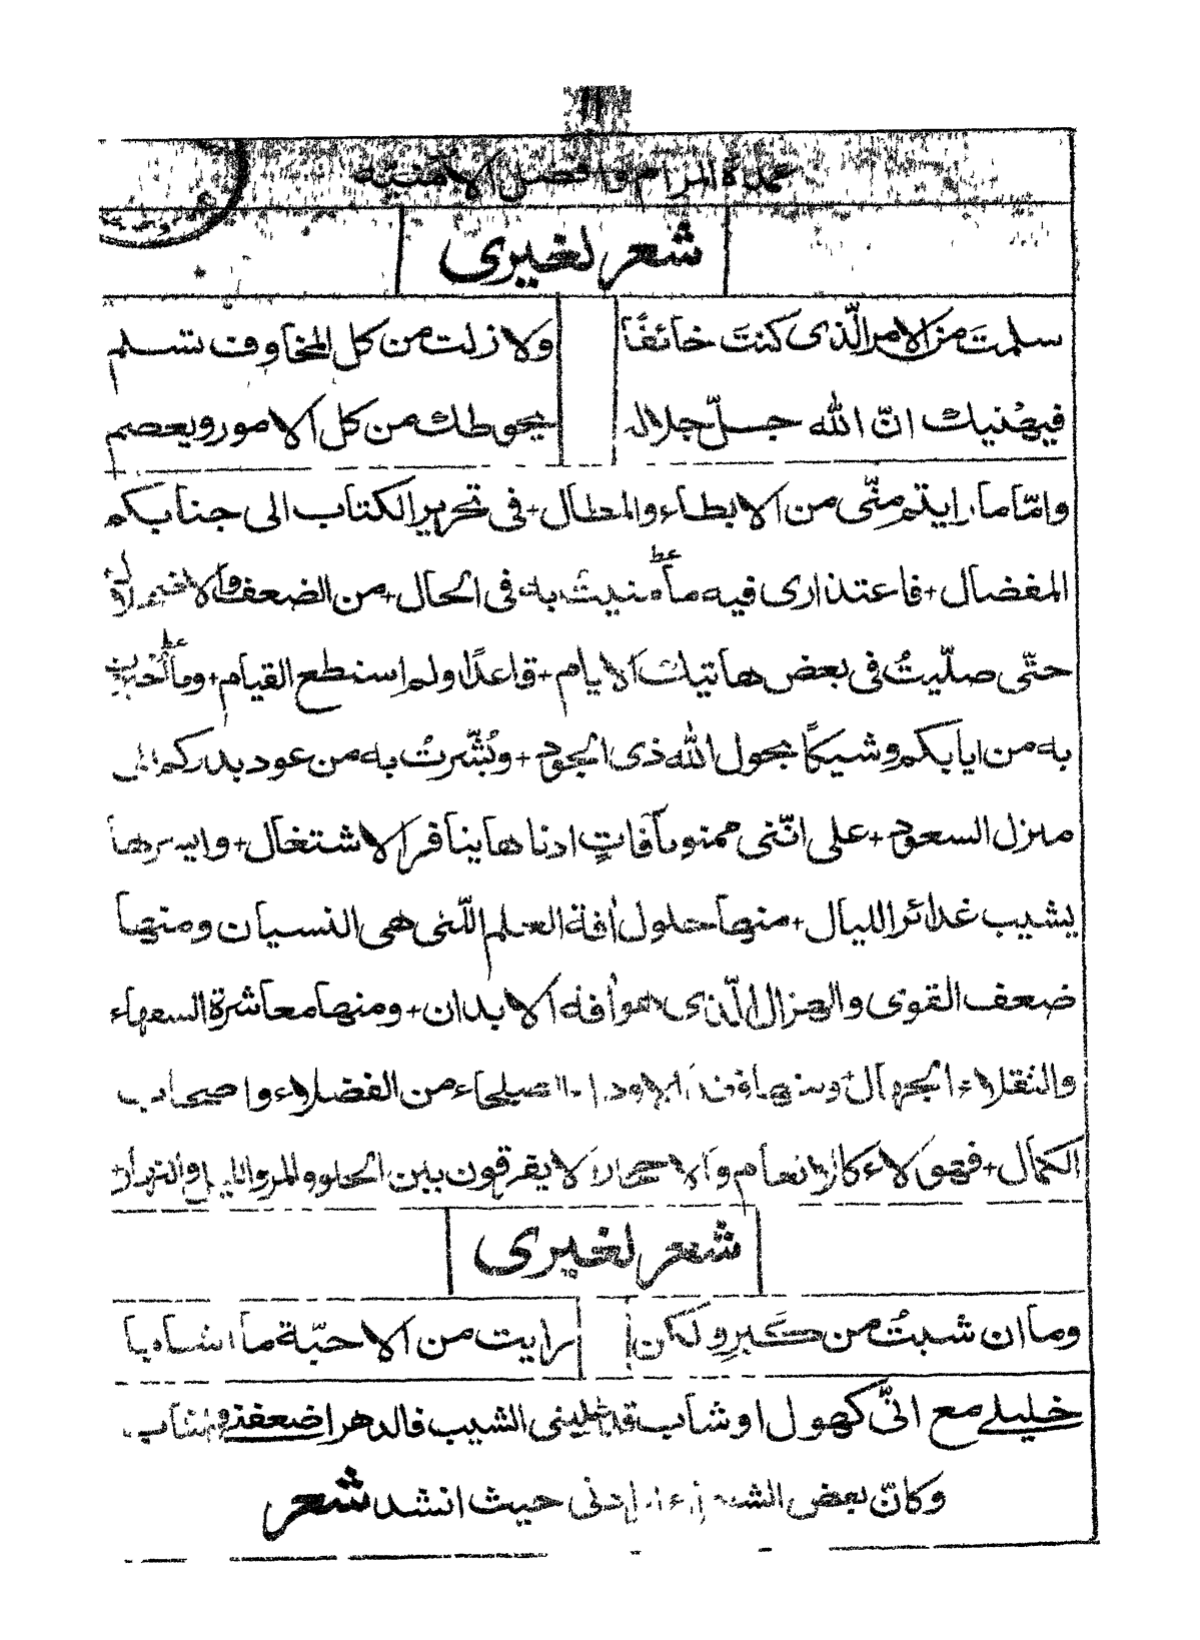 عمدة المرام وافضل الأمنيّة
شعر لغيرى
سلمتَ من الامر الّذى كنتَ خائفًا ولا زلت من كل المخاوف تسلم
فيهنيك انّ الله جلّ جلاله يحوطك من كل الامور ويعصم
وامّا ما رايتم منّى من الابطاء والمطال + فى تحرير الكتاب الى جنابكم
المفضال + فاعتذارى فيه ما منيت به فى الحال + من الضعف
حتّى صلّيتُ فى بعض هاتيك الايام + قاعدًا ولم استطع القيام + وما
به من ايابكم وشيكًا بحول الله ذى الجود + وبُشّرتُ به من عود بدركم الى
منزل السعود + على انّنى ممنو بآفاتٍ ادناها ينافر الاشتغال +
يشيب غدائر الليال + منها حلول أفة العلم اللّتى هى النسيان ومنها
ضعف القوى والهزال الّذى هو أفة الابدان + ومنها معاشرة السفهاء
والثقلاء الجهال + ومنها الصلحاء من الفضلاء واصحاب
الكمال + فهؤلاء كالانعام و لا يفرقون بين الحلو والمر والليل والنهار +
شعر لغيرى
وما ان شبتُ من كَبَرِ ولكن رايت من الاحبّة ما اشابا
خليلے مع انّى كهول او شاب الشيب فالدهر اضعفنے
وكانّ بعض حيث انشد شعر